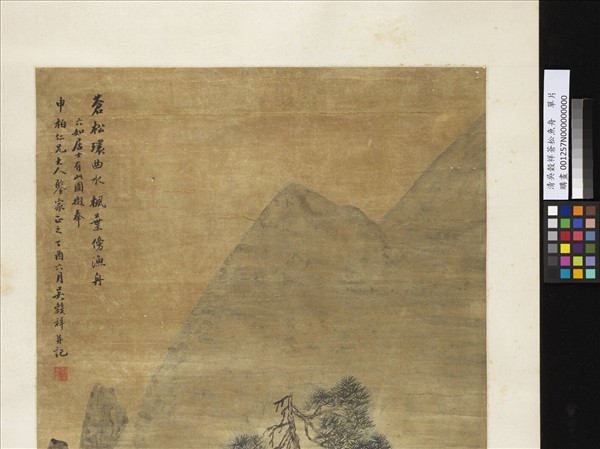 蒼松環曲水楓葉傍漁舟
六如居士有此圖擬奉
申柏仁兄大人鑒家正之丁酉六月吳穀祥并記
清吳穀祥蒼松魚舟 單片
購畫 001257N000000000